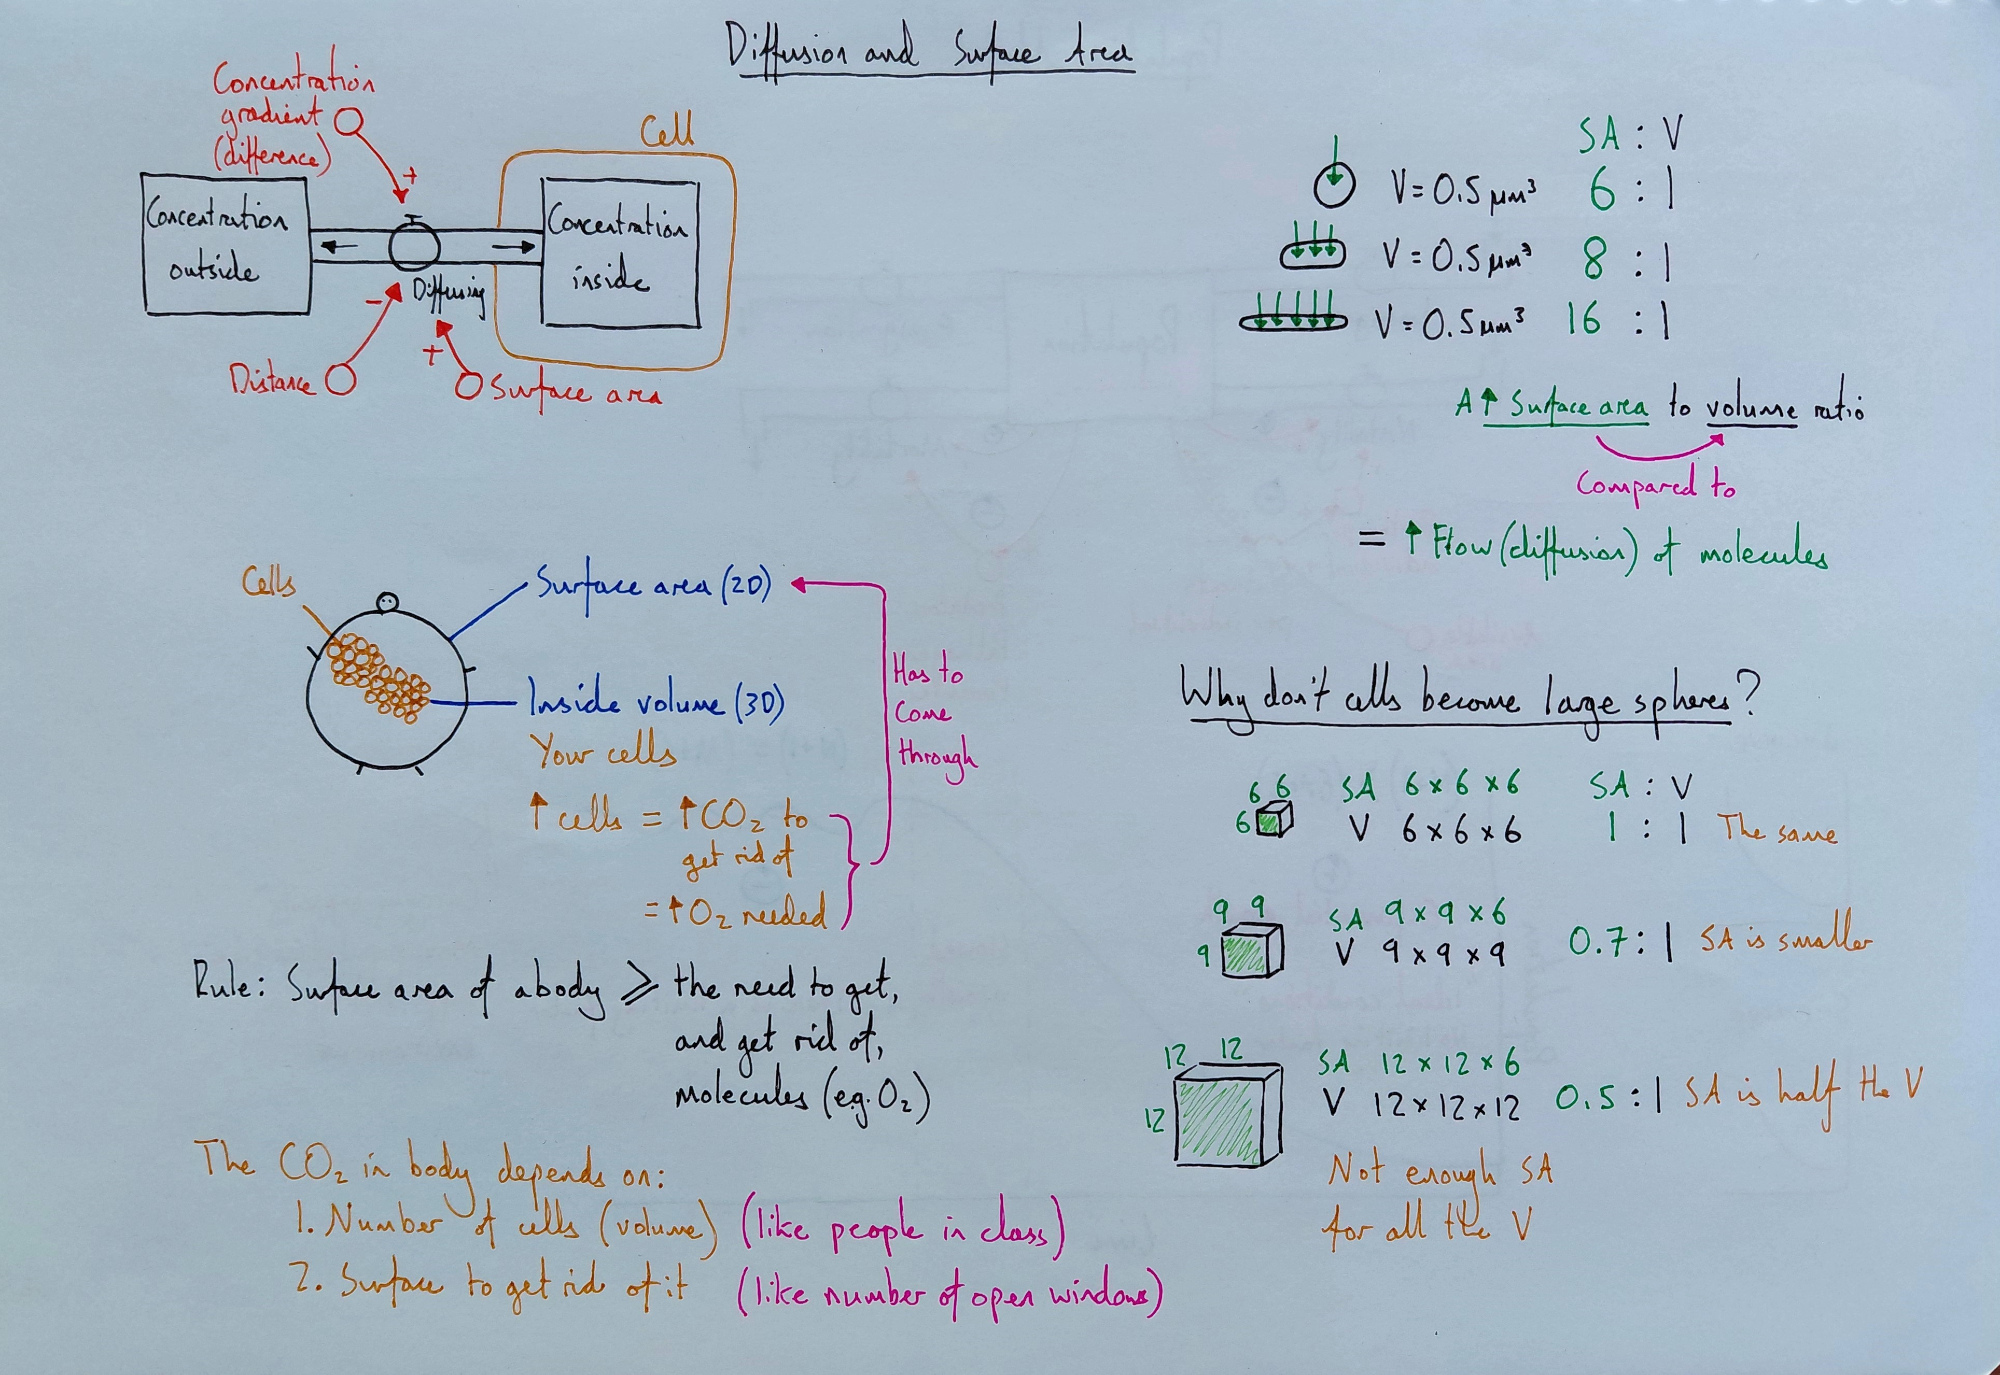 Diffusion and Surface Area
Concentration
gradient
(difference)
+
Cell
Concentration
outside
Concentration
inside
Diffusing
-
+
Distance
Surface area
SA : V
V = 0.5 μm³ 6 : 1
V = 0.5 μm³ 8 : 1
V = 0.5 μm³ 16 : 1
A ↑ Surface area to volume ratio
Compared to
= ↑ Flow (diffusion) of molecules
Cells
Surface area (2D)
Inside volume (3D)
Your cells
↑ cells = ↑ CO₂ to
get rid of
= ↑ O₂ needed
Has to
Come
through
Rule: Surface area of a body ⩾ the need to get,
and get rid of,
molecules (e.g. O₂)
The CO₂ in body depends on:
1. Number of cells (volume) (like people in class)
2. Surface to get rid of it (like number of open windows)
Why don't cells become large spheres?
6 6
6
SA 6 × 6 × 6 SA : V
V 6 × 6 × 6 1 : 1 The same
9 9
9
SA 9 × 9 × 6
V 9 × 9 × 9 0.7 : 1 SA is smaller
12 12
12
SA 12 × 12 × 6
V 12 × 12 × 12 0.5 : 1 SA is half the V
Not enough SA
for all the V